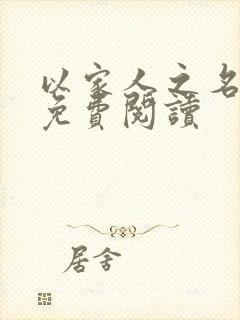 以家人之名
免費閱讀
居舍